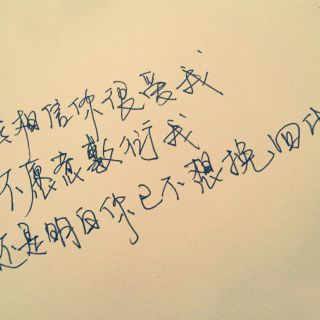 相信你很爱我
不愿意敷衍我
还是明白你已不想挽回什